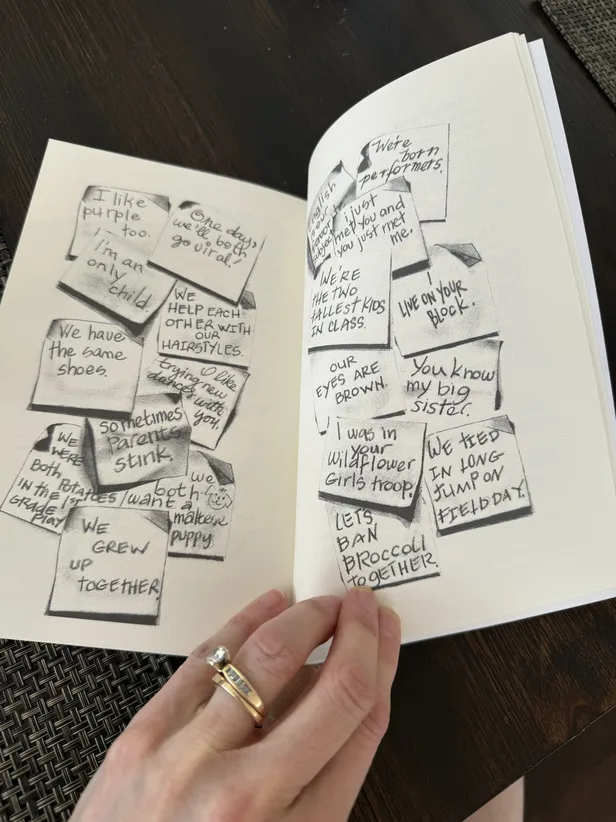 I like
purple
too.
One day,
we'll both
go viral!
I'm an
only
child.
WE
HELP EACH
OTHER WITH
OUR
HAIRSTYLES.
We have
the same
shoes.
I like
trying new
dances with
you.
sometimes
Parents
stink.
WE
WERE
BOTH POTATOES
IN THE 1ST
GRADE
PLAY
we
both
want a
maltese
puppy.
WE
GREW
UP
TOGETHER
We're
born
performers.
English
is our
favorite
subject
i just
met you and
you just met
me.
WE'RE
THE TWO
TALLEST KIDS
IN CLASS.
I
LIVE ON YOUR
BLOCK.
OUR
EYES ARE
BROWN.
You know
my big
sister.
I was in
your
Wildflower
Girls troop.
WE TIED
IN LONG
JUMP ON
FIELD DAY.
LETS
BAN
BROCCOLI
TOGETHER.